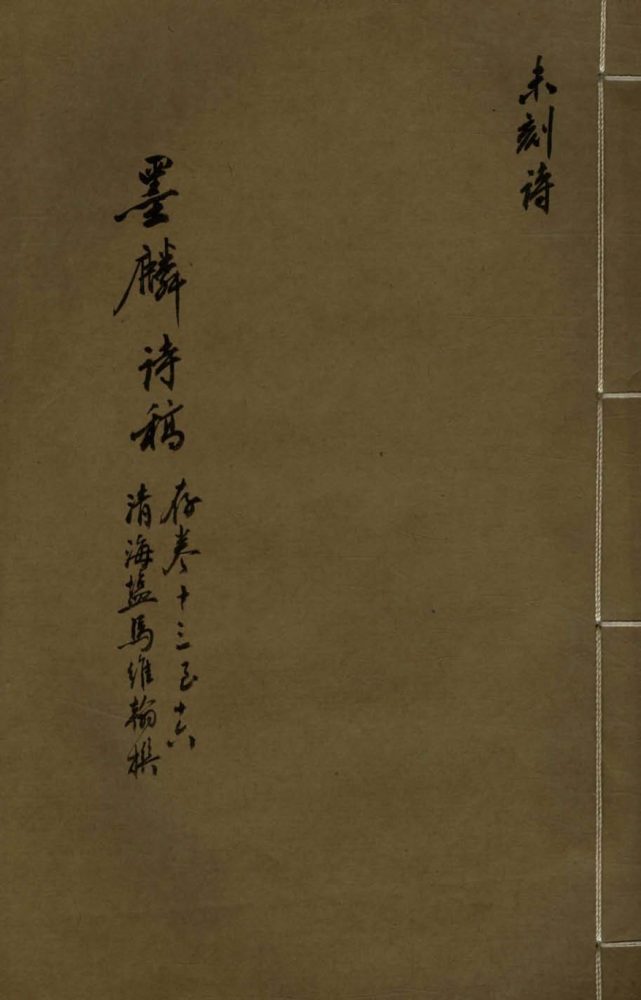 未刻诗
墨麟诗稿
存卷十三至十六
清海盐馬维翰撰